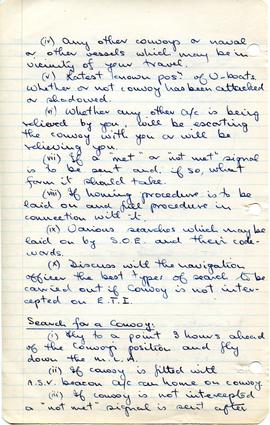 (iv) Any other convoys or naval
or other vessels which may be in
vicinity of your travel.
(v) Latest known posⁿ of U-boats.
Whether or not convoy has been attacked
or shadowed.
(vi) Whether any other a/c is being
relieved by you, will be escorting
the convoy with you or will be
relieving you.
(vii) If a "met" or "not met" signal
is to be sent and if so, what
form it should take.
(viii) If homing procedure is to be
laid on and full procedure in
connection with it.
(ix) Various searches which may be
laid on by S.O.E. and their code-
words.
(x) Discuss with the navigation
officer the best types of search to be
carried out if convoy is not inter-
cepted on E.T.I.
Search for a Convoy:
(i) Fly to a point 3 hours ahead
of the convoys position and fly
down the M.L.A.
(ii) If convoy is fitted with
A.S.V. beacon a/c can home on convoy.
(iii) If convoy is not intercepted
a "not met" signal is sent after